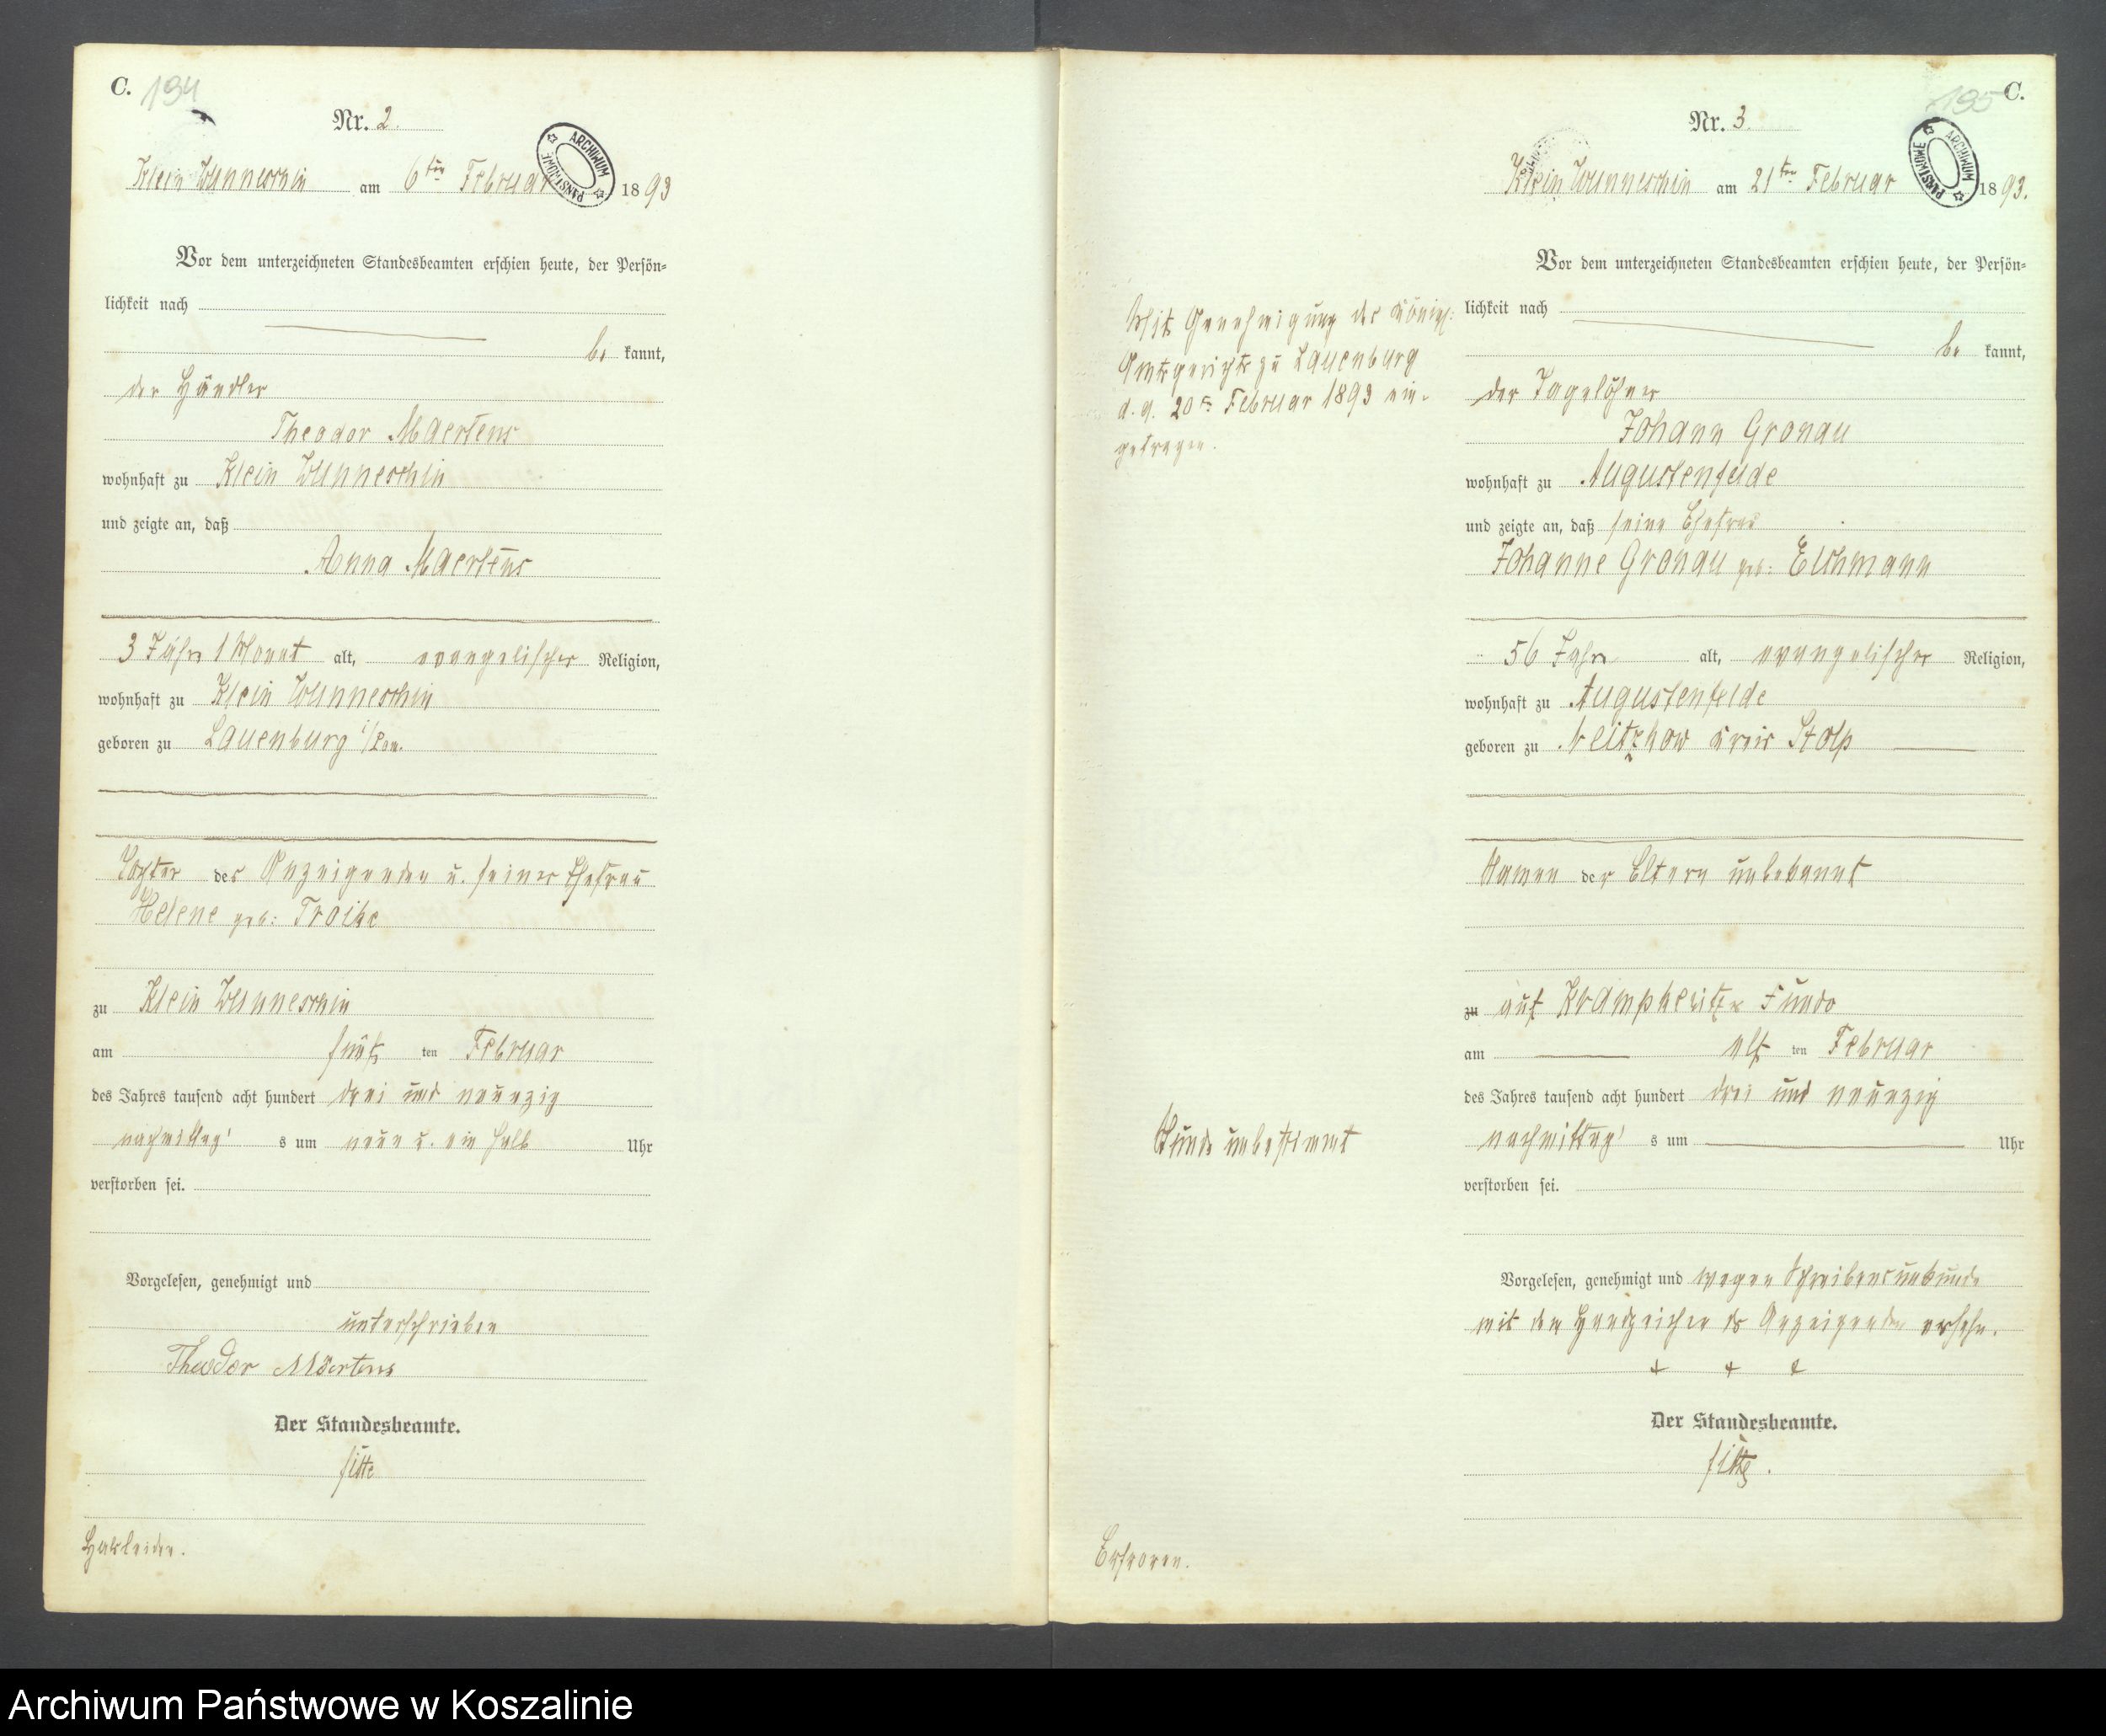 C. 194
Nr. 2.
ARCHIWUM PAŃSTWOWE
Klein Wunneschin am 6ten Februar 1893
Vor dem unterzeichneten Standesbeamten erschien heute, der Persön-
lichkeit nach
be kannt,
der Händler
Theodor Maertens
wohnhaft zu Klein Wunneschin
und zeigte an, daß
Anna Maertens
3 Jahre 1 Monat alt, evangelischer Religion,
wohnhaft zu Klein Wunneschin
geboren zu Lauenburg i/Pom.
Tochter des Anzeigenden u. seiner Ehefrau
Helene geb: Troike
zu Klein Wunneschin
am fünf ten Februar
des Jahres tausend acht hundert drei und neunzig
nachmittag's um neun u. ein halb Uhr
verstorben sei.
Vorgelesen, genehmigt und
unterschrieben
Theodor Märtens
Der Standesbeamte.
Halsleiden.
195 C.
Nr. 3.
ARCHIWUM PAŃSTWOWE
Klein Wunneschin am 21ten Februar 1893.
Vor dem unterzeichneten Standesbeamten erschien heute, der Persön-
lichkeit nach
be kannt,
der Tagelöhner
Johann Gronau
wohnhaft zu Augustenfelde
und zeigte an, daß seine Ehefrau
Johanne Gronau geb: Elchmann
56 Jahre alt, evangelischer Religion,
wohnhaft zu Augustenfelde
geboren zu Veitzkow Kreis Stolp
Namen der Eltern unbekannt
zu auf Krampkewitze Fundo
am elf ten Februar
des Jahres tausend acht hundert drei und neunzig
nachmittag's um Uhr
verstorben sei.
Vorgelesen, genehmigt und wegen Schreibensunkunde
mit dem Handzeichen des Anzeigenden versehn.
+ + +
Der Standesbeamte.
Mit Genehmigung des Königl:
Amtsgerichts zu Lauenburg
d. d. 20ten Februar 1893 ein-
getragen.
Stunde unbestimmt
Erfroren.
Archiwum Państwowe w Koszalinie